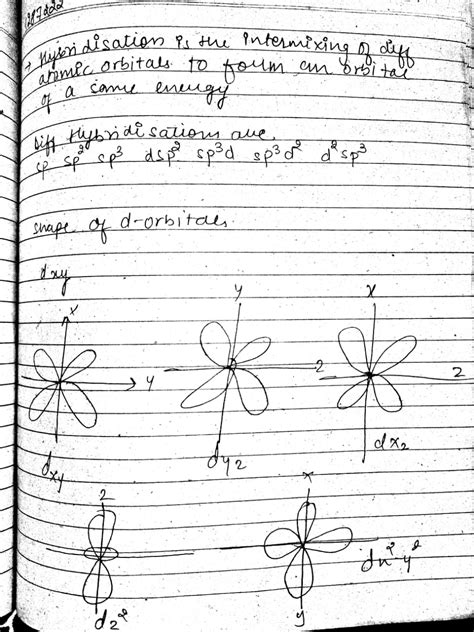 Hybridisation is the intermixing of diff
atomic orbitals to foum an orbital
of a same energy
Diff Hybridisations are,
sp sp² sp³ dsp² sp³d sp³d² d²sp³
shape of d-orbitals
dxy
x
y
dxy
y
z
dyz
x
z
dxz
z
dz²
x
y
dx²-y²